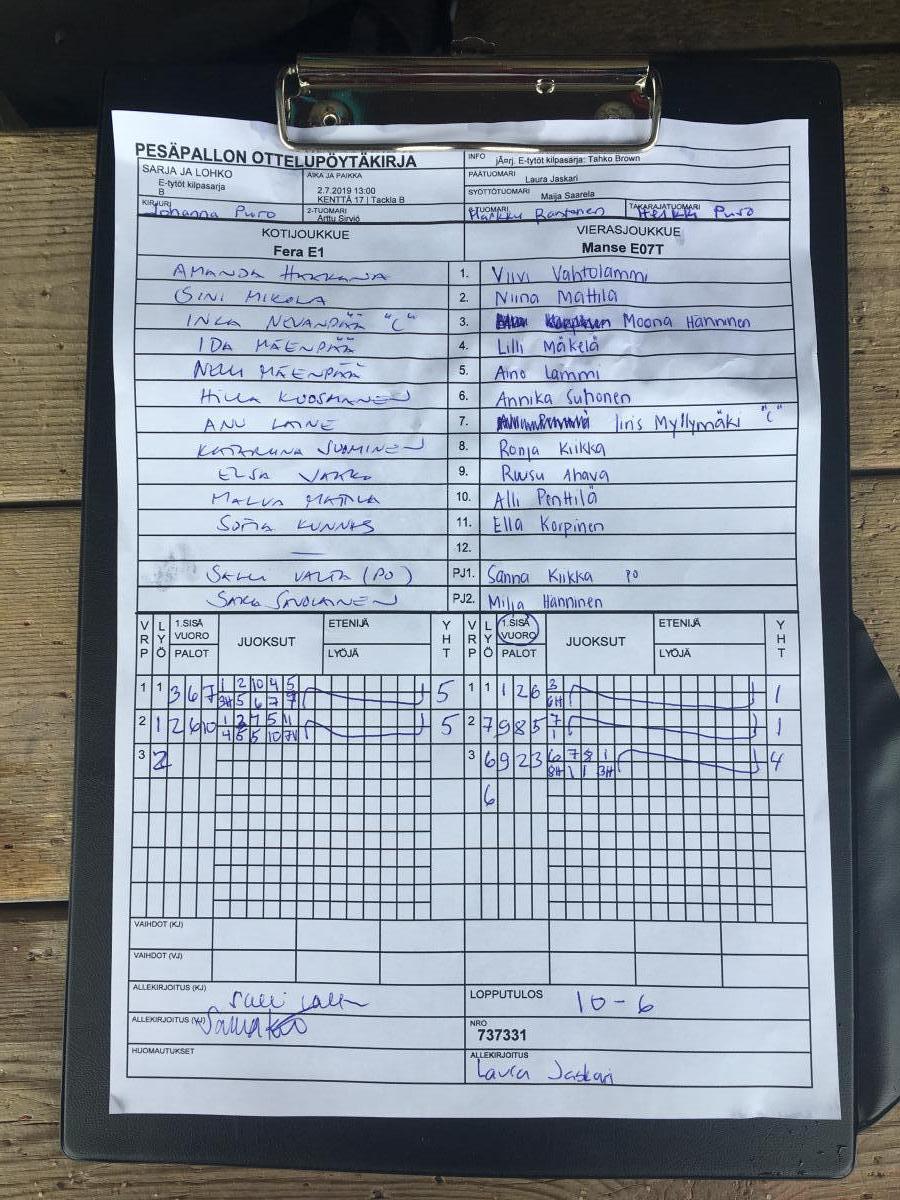 PESÄPALLON OTTELUPÖYTÄKIRJA
INFO jÃ¤rj. E-tytöt kilpasarja: Tahko Brown
SARJA JA LOHKO
E-tytöt kilpasarja
B
AIKA JA PAIKKA
2.7.2019 13:00
KENTTÄ 17 | Tackla B
PÄÄTUOMARI Laura Jaskari
SYÖTTÖTUOMARI Maija Saarela
KIRJURI Johanna Puro
2-TUOMARI Arttu Sirviö
Markku Rantanen
TAKARAJATUOMARI Heikki Puro
KOTIJOUKKUE
Fera E1
VIERASJOUKKUE
Manse E07T
AMANDA 1. Viivi Vahtolammi
SINI MIKOLA 2. Niina Mattila
INKA NEVANPÄÄ "C" 3. Moona Hänninen
IDA MÄENPÄÄ 4. Lilli Mäkelä
NELLI MÄENPÄÄ 5. Aino Lammi
HILLA KUOSMANEN 6. Annika Suhonen
ANU LAINE 7. Iiris Myllymäki "C"
KATARIINA SUOMINEN 8. Ronja Kiikka
ELSA 9. Ruusu Ahava
MALVA MATTILA 10. Alli Penttilä
SOFIA KUNNAS 11. Ella Korpinen
— 12.
SALLI VALTA (PO) PJ1. Sanna Kiikka PO
SARA SAVOLAINEN PJ2. Milja Hänninen
VRP LYÖ 1.SISÄ VUORO PALOT JUOKSUT ETENIJÄ LYÖJÄ YHT VRP LYÖ 1.SISÄ VUORO PALOT JUOKSUT ETENIJÄ LYÖJÄ YHT
1 1 3 6 7 1 2 10 4 5 5 1 1 1 2 6 3 1
3H 5 6 7 9 6H
2 1 2 6 10 1 3 4 5 11 5 2 7 9 8 5 7 1
4 5 5 10 1
3 2 3 6 9 2 3 6 7 8 1 4
8H 1 1 3H
6
VAIHDOT (KJ)
VAIHDOT (VJ)
ALLEKIRJOITUS (KJ)
LOPPUTULOS 10-6
ALLEKIRJOITUS (VJ)
NRO
737331
HUOMAUTUKSET
ALLEKIRJOITUS
Laura Jaskari